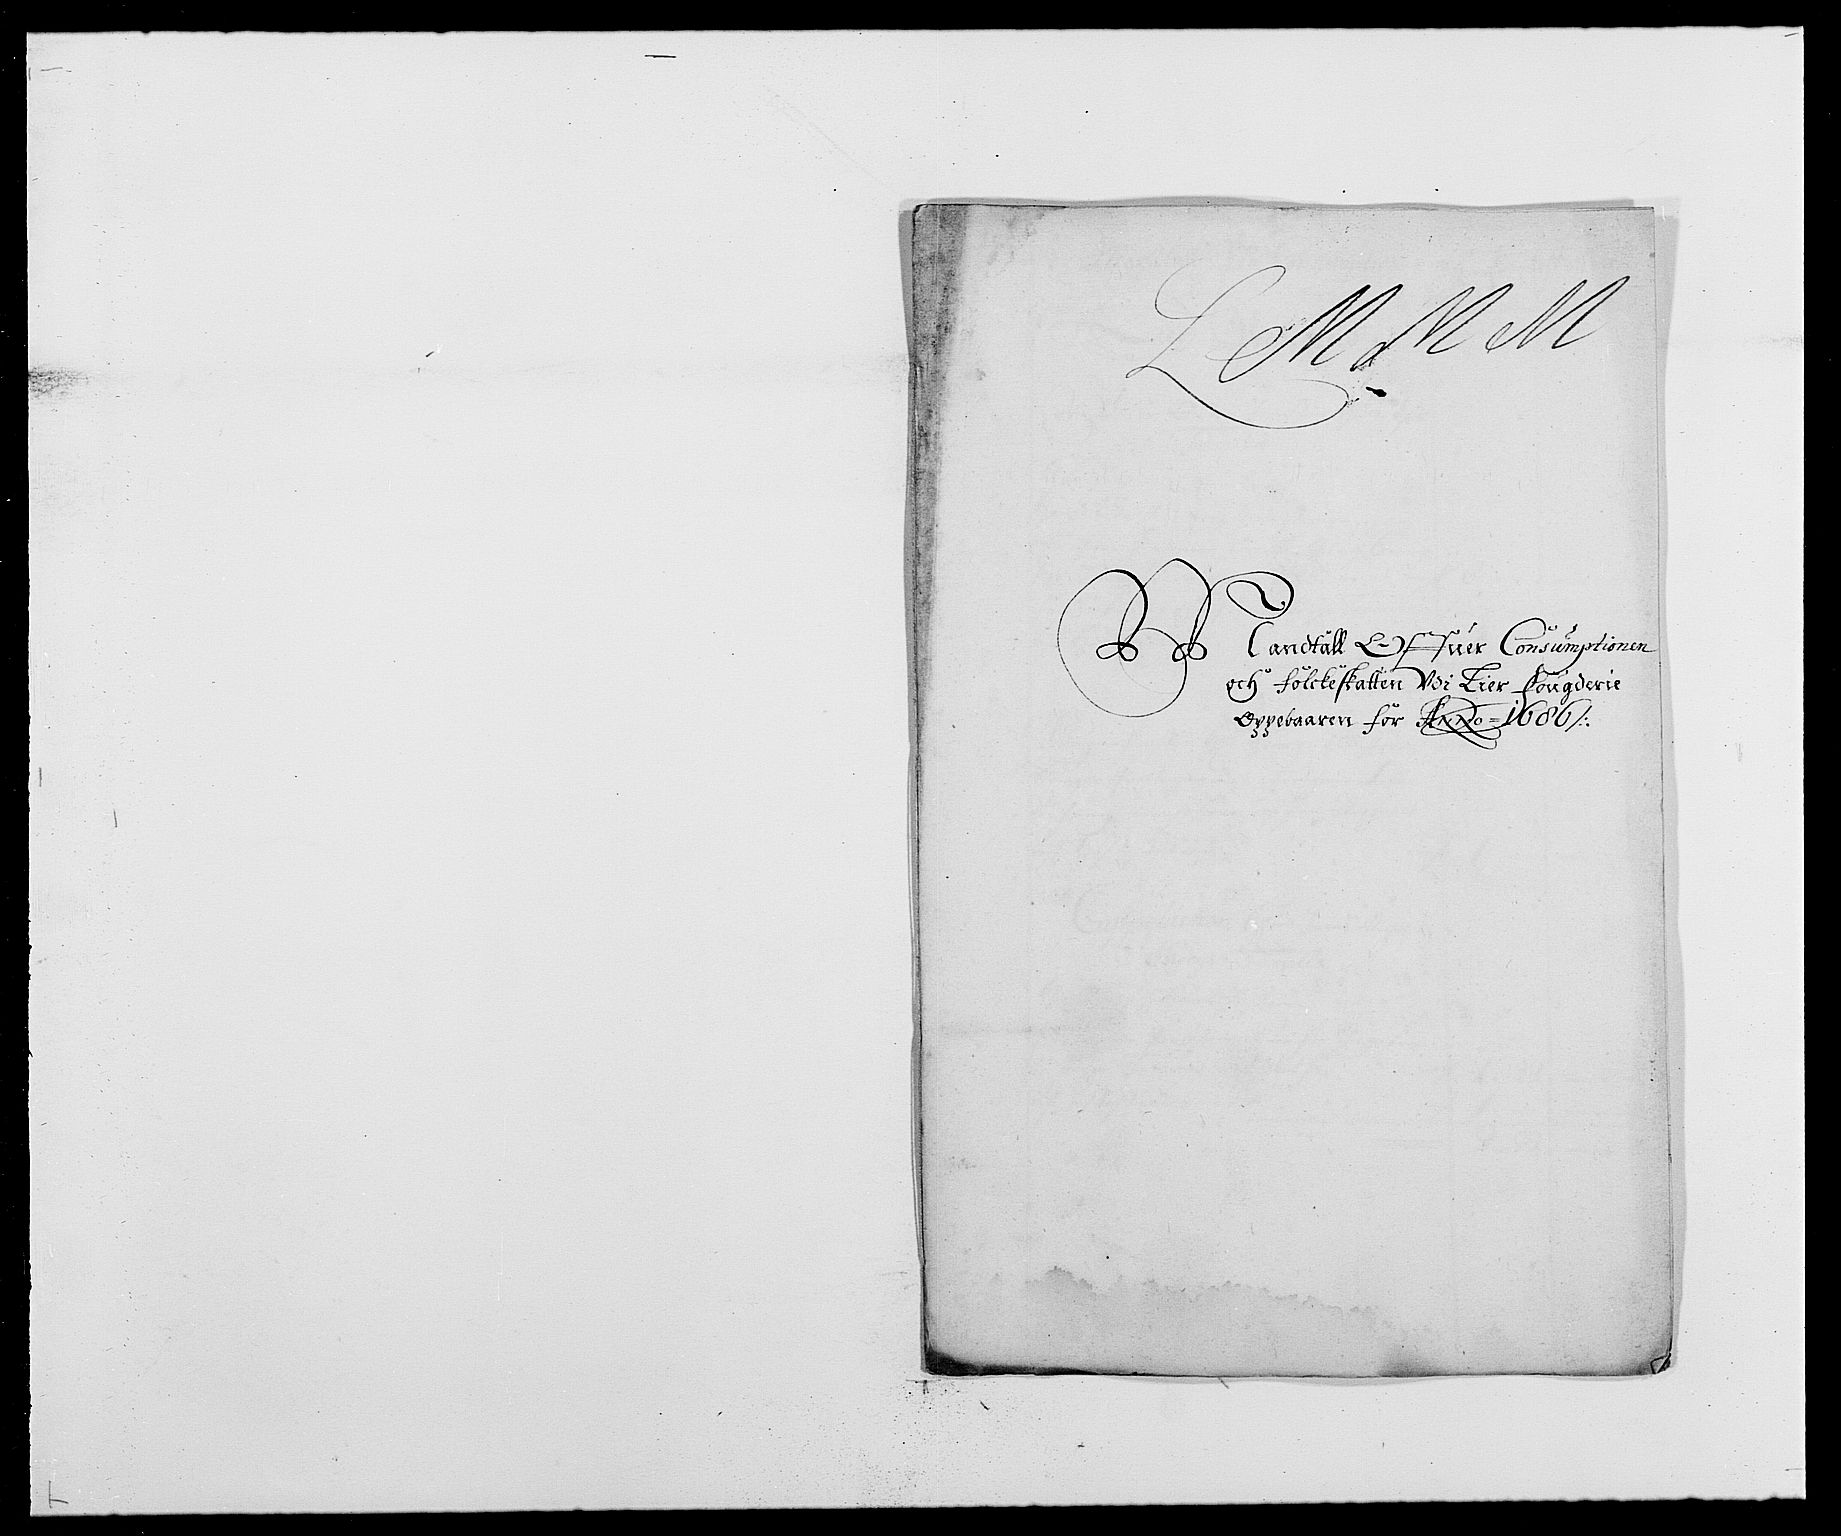 L M M M
Mandtall Offuer Consumptionen
och folckeskatten Vdi Lier fougderie
Oppebaaren for Anno 1686 /: